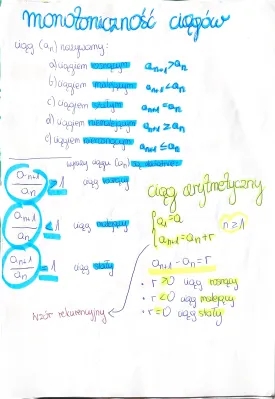 monotoniczność ciągów
ciąg (aₙ) nazywamy:
a) ciągiem rosnącym aₙ₊₁>aₙ
b) ciągiem malejącym aₙ₊₁<aₙ
c) ciągiem stałym aₙ₊₁=aₙ
d) ciągiem niemalejącym aₙ₊₁≥aₙ
e) ciągiem nierosnącym aₙ₊₁≤aₙ
wyrazy ciągu (aₙ) są dodatnie:
aₙ₊₁/aₙ >1 ciąg rosnący
aₙ₊₁/aₙ <1 ciąg malejący
aₙ₊₁/aₙ =1 ciąg stały
ciąg arytmetyczny
{a₁=a
aₙ₊₁=aₙ+r n≥1
aₙ₊₁-aₙ=r
• r>0 ciąg rosnący
• r<0 ciąg malejący
• r=0 ciąg stały
wzór rekurencyjny